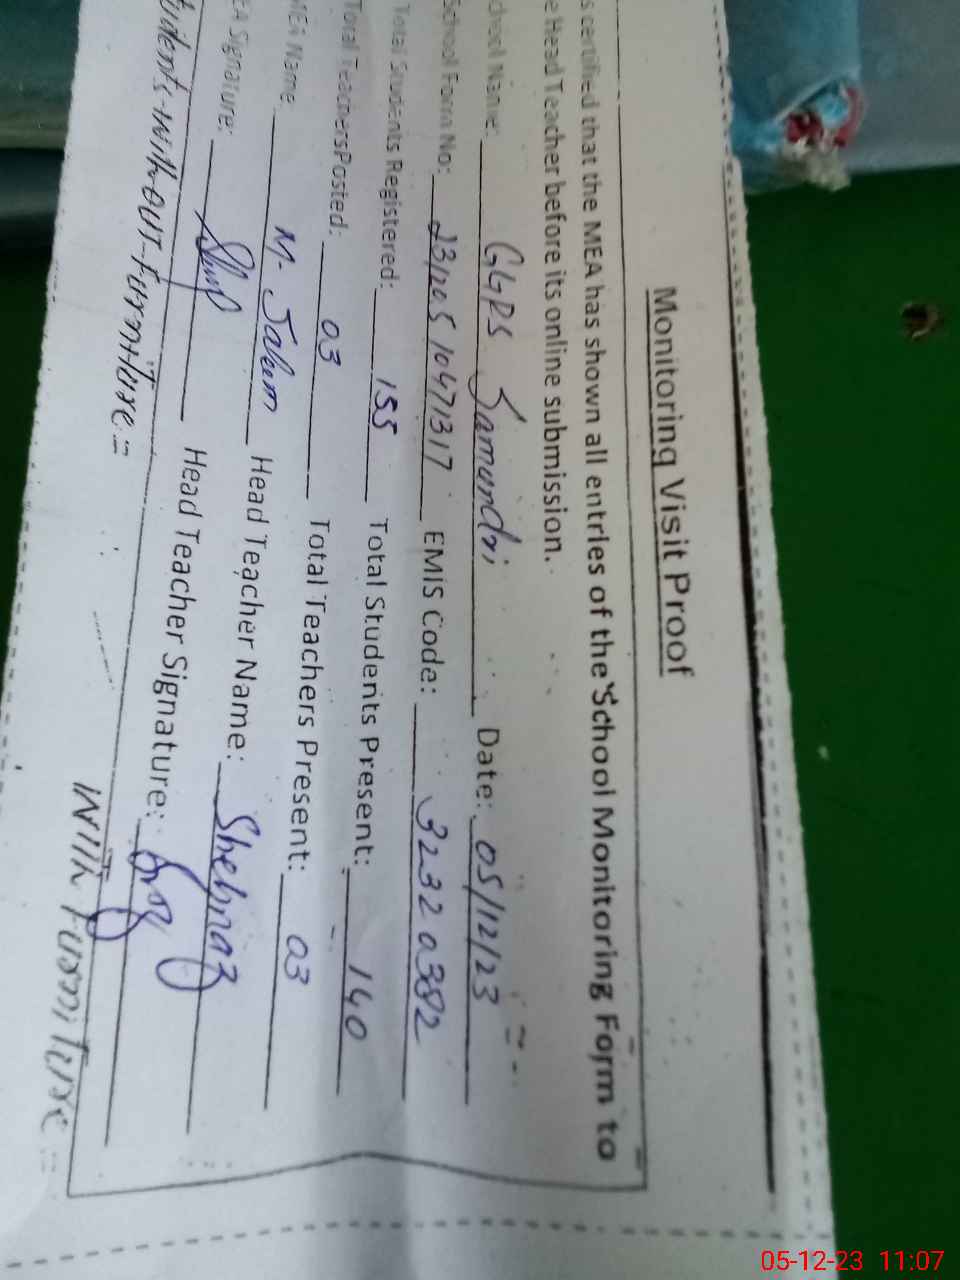 Monitoring Visit Proof
s certified that the MEA has shown all entries of the School Monitoring Form to
e Head Teacher before its online submission.
chool Name: GGPS Samundri Date: 05/12/23
School Form No: EMIS Code: 32320382
Total Students Registered: 155 Total Students Present: 140
Total Teachers Posted: 03 Total Teachers Present: 03
MEA Name: M. Saleem Head Teacher Name: Shehnaz
EA Signature: Head Teacher Signature:
tudents-without-Furniture=
With Furniture
05-12-23 11:07